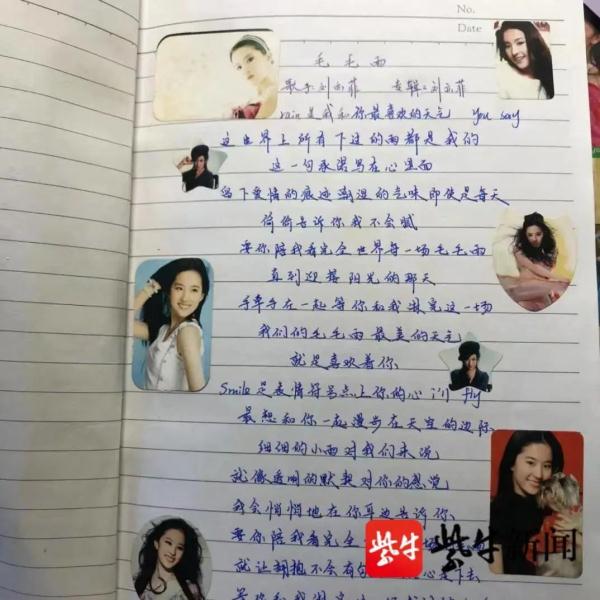 No.
Date
毛毛雨
歌手:刘亦菲 专辑:刘亦菲
rain是我和你最喜欢的天气 You say
这世界上所有下过的雨都是我的
这一句承诺写在心里面
留下爱情的痕迹潮湿的气味即使是每天
偷偷告诉你我不会腻
要你陪我看完全世界每一场毛毛雨
直到迎接阳光的那天
手牵手在一起等你和我淋完这一场
我们的毛毛雨最美的天气
就是喜欢着你
Smile是表情符号点上你的心 fly
最想和你一起漫步在天空的边际
细细的小雨对我们来说
就像透明的默契对你的感觉
我会悄悄地在你耳边告诉你
要你陪我看完全
就让拥抱不会有 下去
紫牛 紫牛新闻